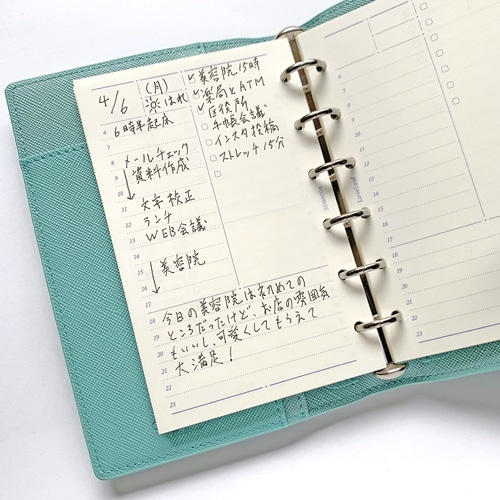 4/6 (月)
はれ
6時半起床
メールチェック
資料作成
文字校正
ランチ
WEB会議
美容院
美容院15時
薬局とATM
区役所
手帳会議
インスタ投稿
ストレッチ15分
今日の美容院は初めての
ところだったけど、お店の雰囲気
もいいし、可愛くしてもらえて
大満足!
6
7
8
9
10
11
12
13
14
15
16
17
18
19
20
21
22
23